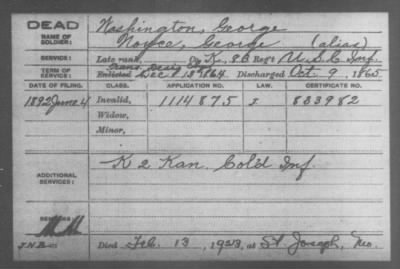 DEAD
NAME OF SOLDIER:
Washington, George
Noyce, George (alias)
SERVICE:
Late rank, Co. K, 83 Reg't U.S.C. Inf.
TERM OF SERVICE:
Enlisted Dec 13 1864 Discharged Oct. 9, 1865
DATE OF FILING. CLASS. APPLICATION NO. LAW. CERTIFICATE NO.
1892 June 4 Invalid, 1114875 833982
Widow,
Minor,
ADDITIONAL SERVICES:
K 2 Kan. Col'd Inf
REMARKS:
J.N.B. Died Feb. 13, 1923, at St. Joseph, Mo.